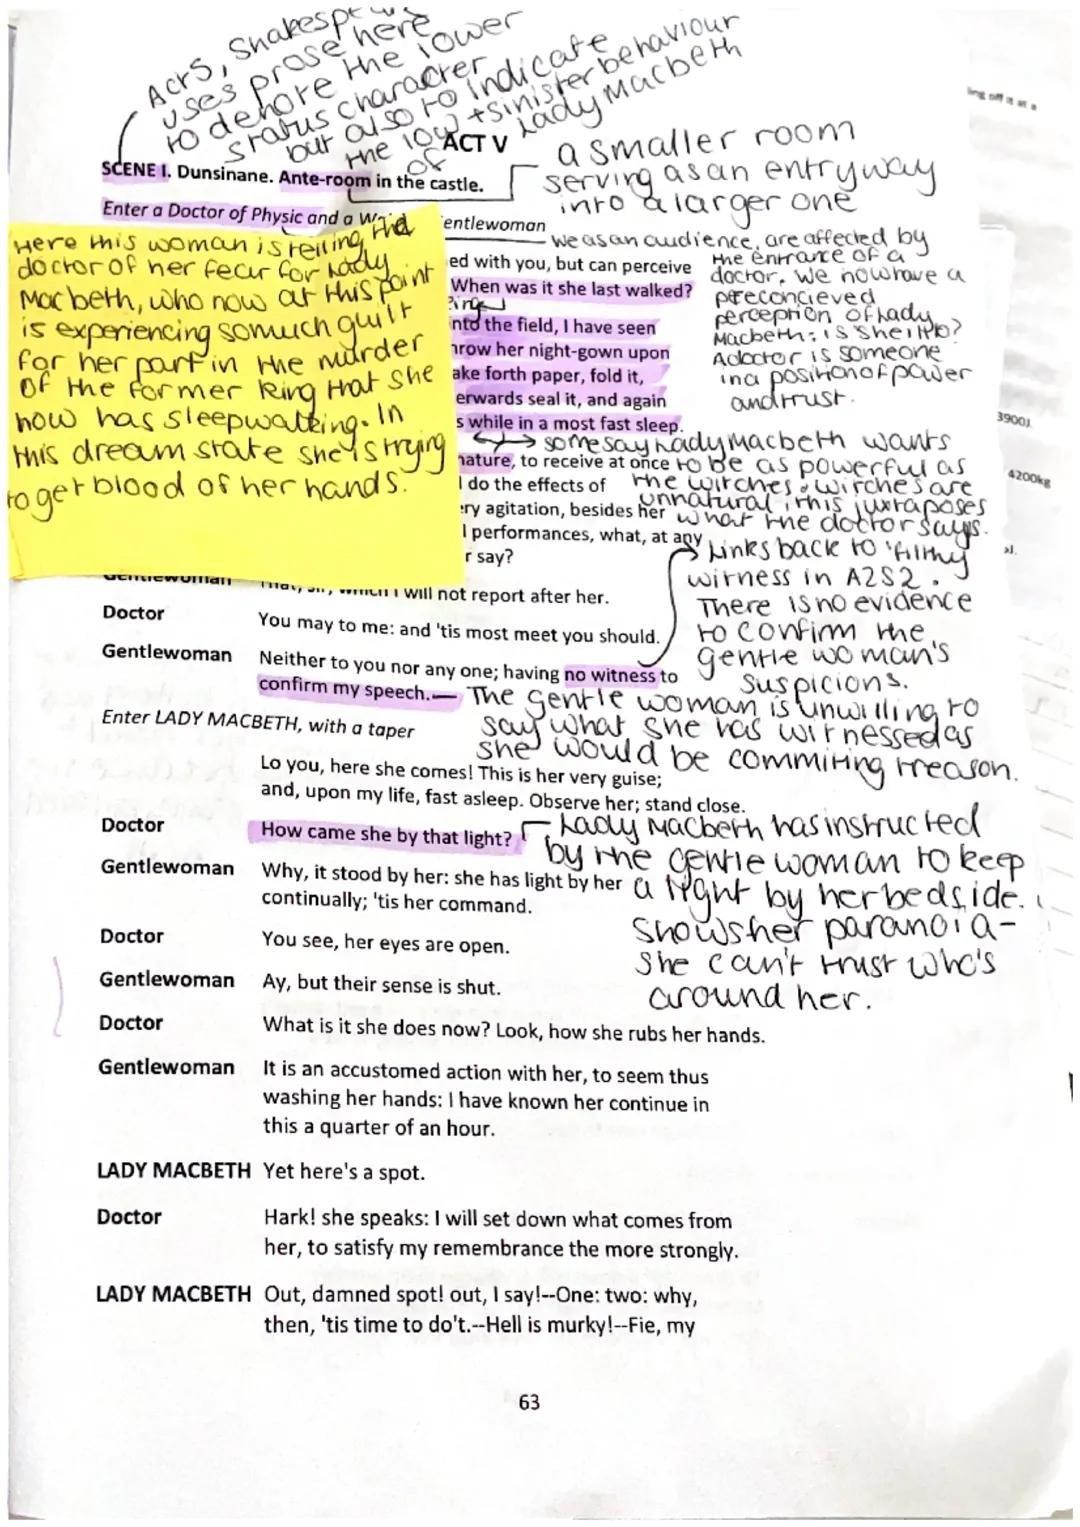 Act 5, Shakespeare
uses prose here
to denote the lower
status character
but also to indicate
the low + sinister behaviour
of Lady Macbeth
ACT V
SCENE I. Dunsinane. Ante-room in the castle.
a smaller room
serving as an entryway
into a larger one
Enter a Doctor of Physic and a
entlewoman
Here this woman is telling the
doctor of her fear for Lady
Macbeth, who now at this point
is experiencing so much guilt
for her part in the murder
of the former king that she
now has sleepwalking. In
this dream state she is trying
to get blood of her hands.
ed with you, but can perceive
When was it she last walked?
nto the field, I have seen
hrow her night-gown upon
ake forth paper, fold it,
erwards seal it, and again
s while in a most fast sleep.
We as an audience, are affected by
the entrance of a
doctor. We now have a
preconcieved
perception of Lady
Macbeth: is she ill?
A doctor is someone
in a position of power
and trust.
nature, to receive at once
I do the effects of
ery agitation, besides her
l performances, what, at any
r say?
some say Lady Macbeth wants
to be as powerful as
the witches. witches are
unnatural, this juxtaposes
what the doctor says.
Links back to 'filthy
witness in A2S2.
There is no evidence
to confirm the
gentle woman's
suspicions.
Gentlewoman That, sir, which I will not report after her.
Doctor You may to me: and 'tis most meet you should.
Gentlewoman Neither to you nor any one; having no witness to
confirm my speech.
The gentle woman is unwilling to
say what she has witnessed as
she would be commiting treason.
Enter LADY MACBETH, with a taper
Lo you, here she comes! This is her very guise;
and, upon my life, fast asleep. Observe her; stand close.
Doctor How came she by that light?
Lady Macbeth has instructed
by the gentle woman to keep
a light by her bedside.
Shows her paranoia-
she can't trust who's
around her.
Gentlewoman Why, it stood by her: she has light by her
continually; 'tis her command.
Doctor You see, her eyes are open.
Gentlewoman Ay, but their sense is shut.
Doctor What is it she does now? Look, how she rubs her hands.
Gentlewoman It is an accustomed action with her, to seem thus
washing her hands: I have known her continue in
this a quarter of an hour.
LADY MACBETH Yet here's a spot.
Doctor Hark! she speaks: I will set down what comes from
her, to satisfy my remembrance the more strongly.
LADY MACBETH Out, damned spot! out, I say!--One: two: why,
then, 'tis time to do't.--Hell is murky!--Fie, my
63
ing off it at a
3900J
4200kg